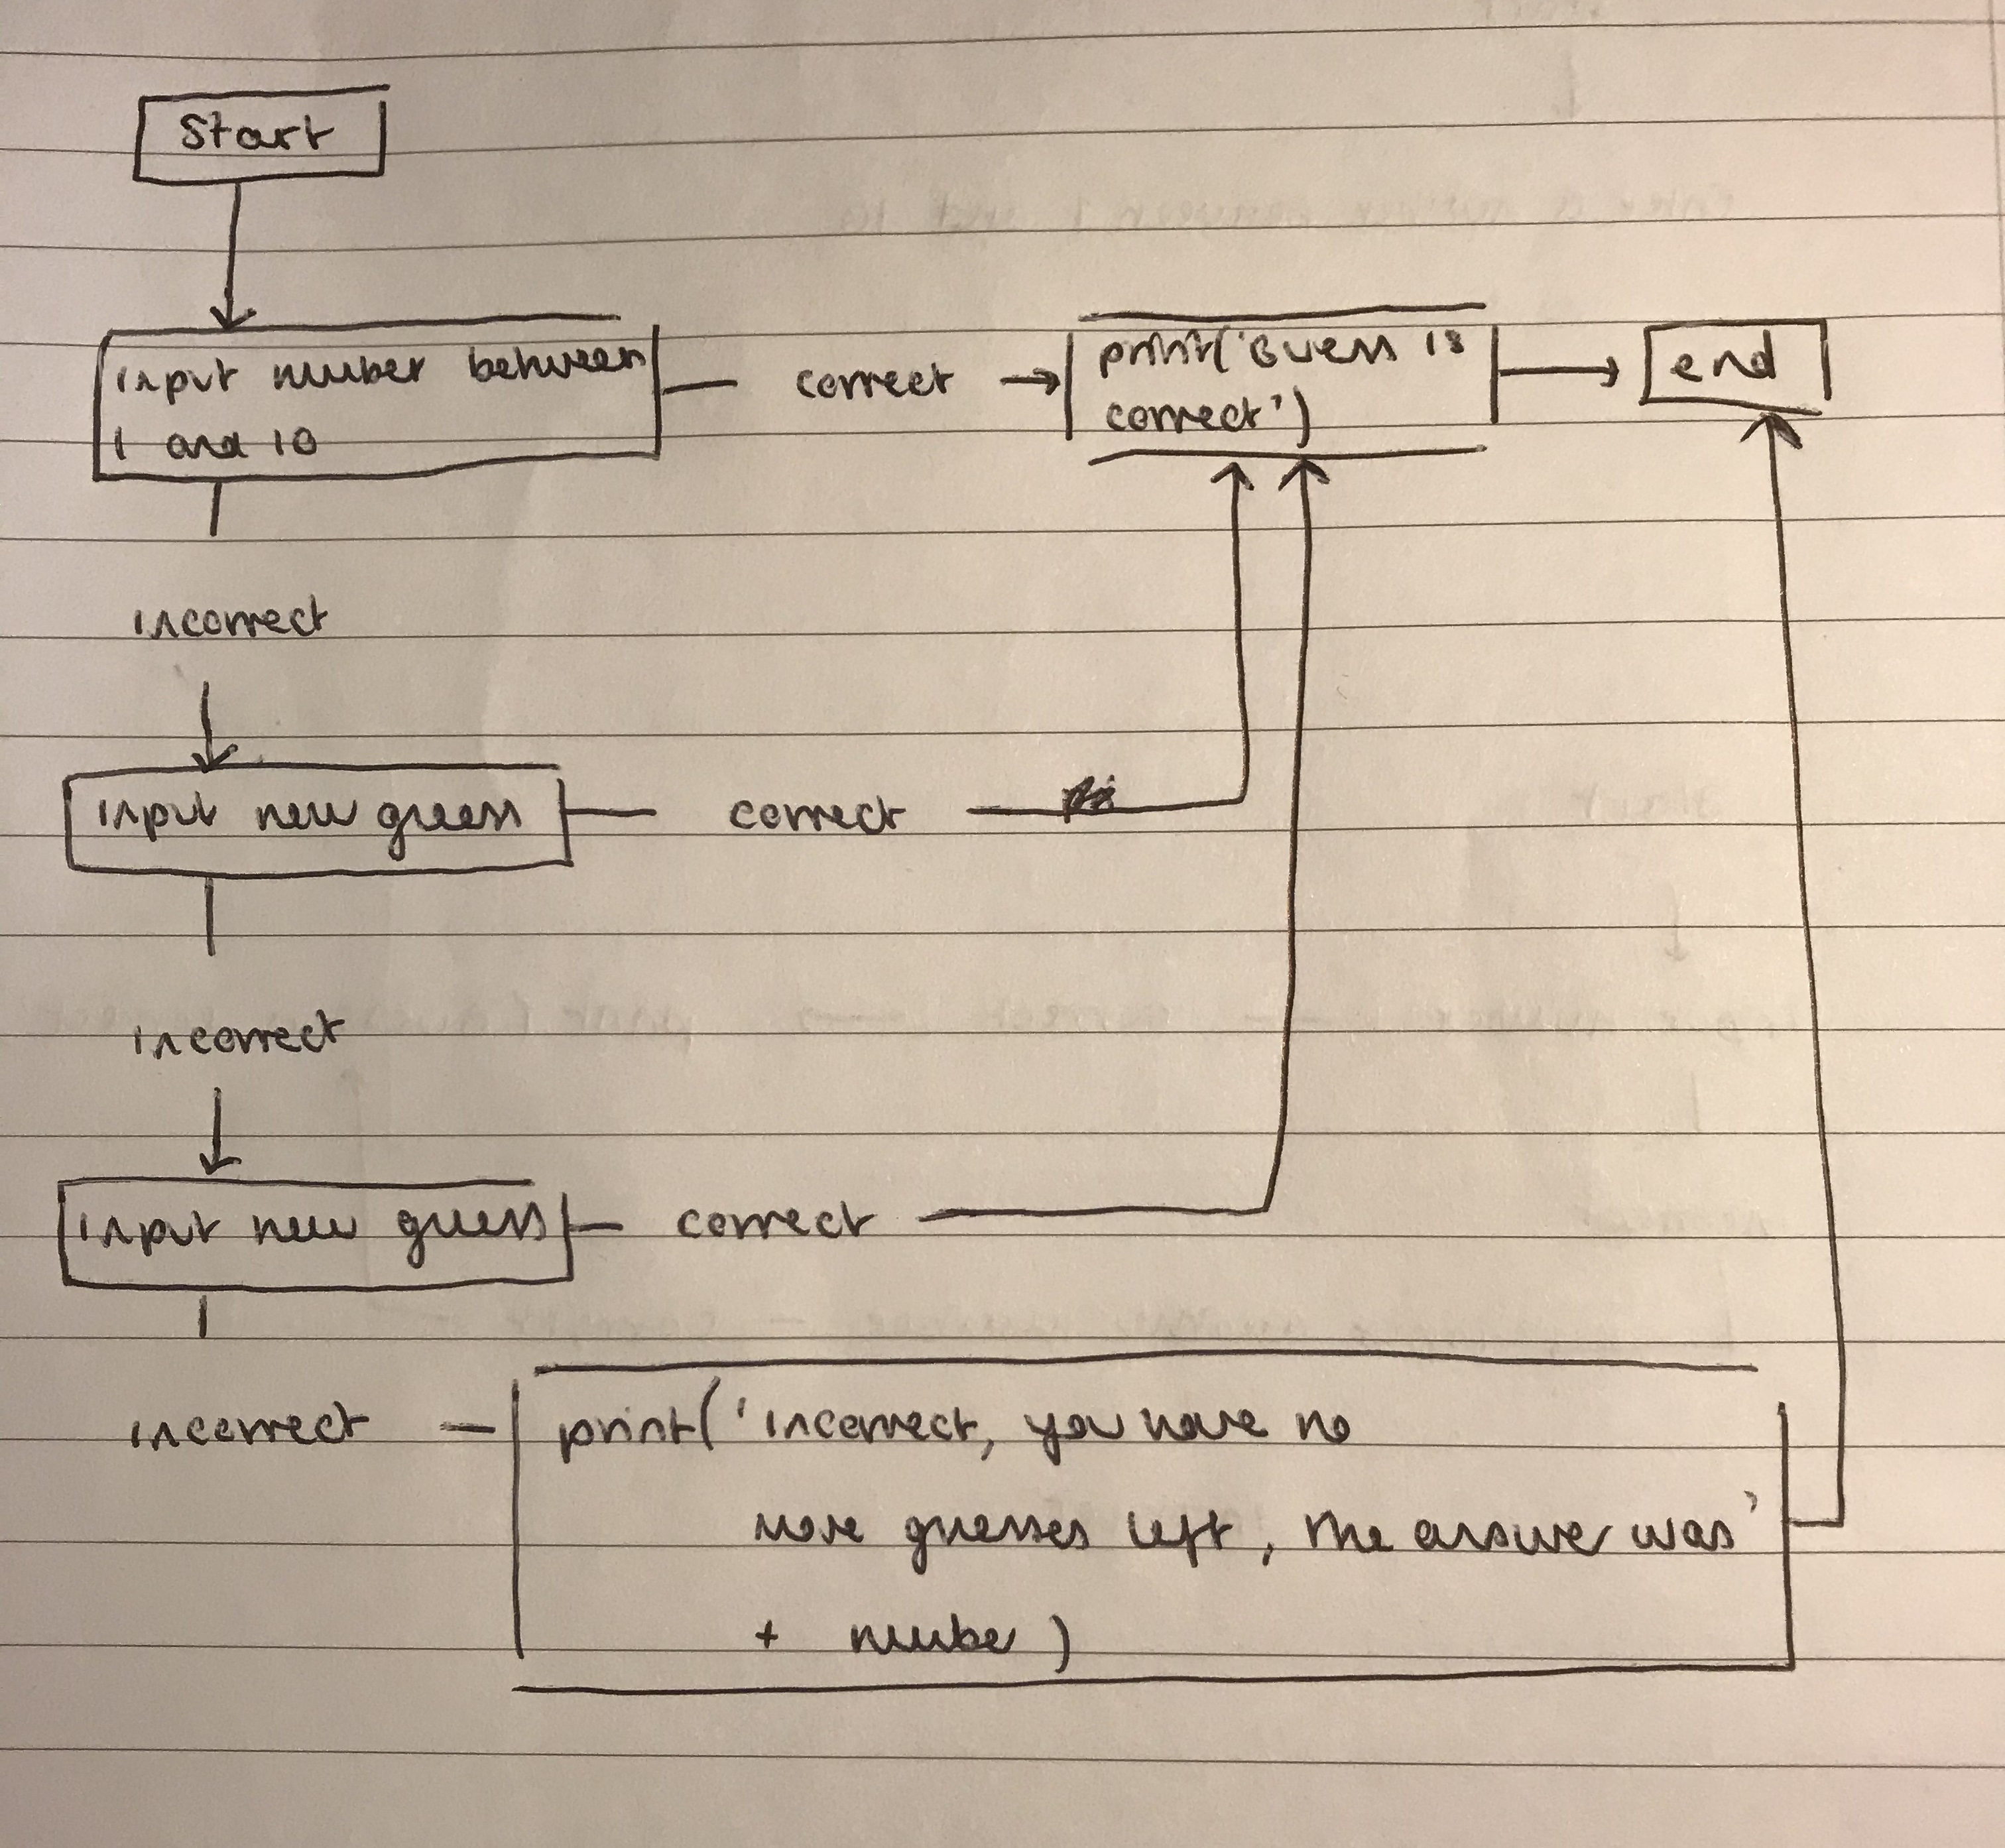 Start
input number between
1 and 10
correct
print('Guess is
correct')
end
incorrect
input new guess
correct
incorrect
input new guess
correct
incorrect
print('incorrect, you have no
more guesses left, the answer was'
+ number)